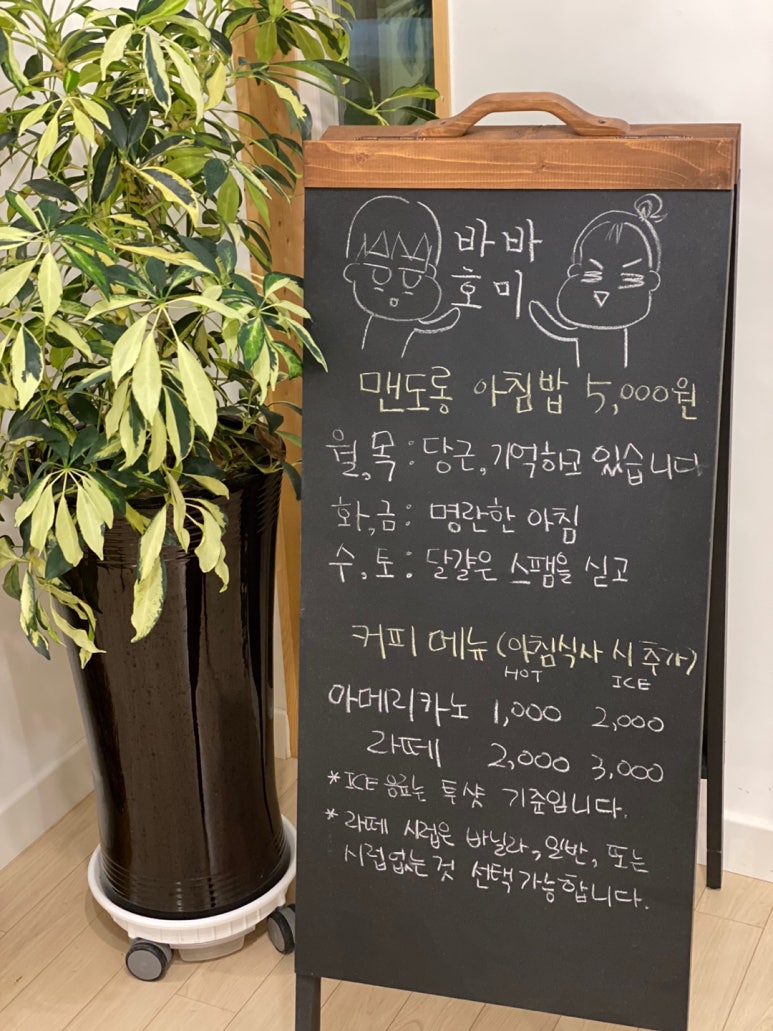 바바
호미
맨도롱 아침밥 5,000원
월,목 : 당근,기억하고 있습니다
화,금 : 명란한 아침
수,토 : 달걀은 스팸을 싣고
커피 메뉴 (아침식사 시 추가)
HOT ICE
아메리카노 1,000 2,000
라떼 2,000 3,000
* ICE 음료는 투샷 기준입니다.
* 라떼 시럽은 바닐라, 일반, 또는
시럽없는 것 선택가능합니다.